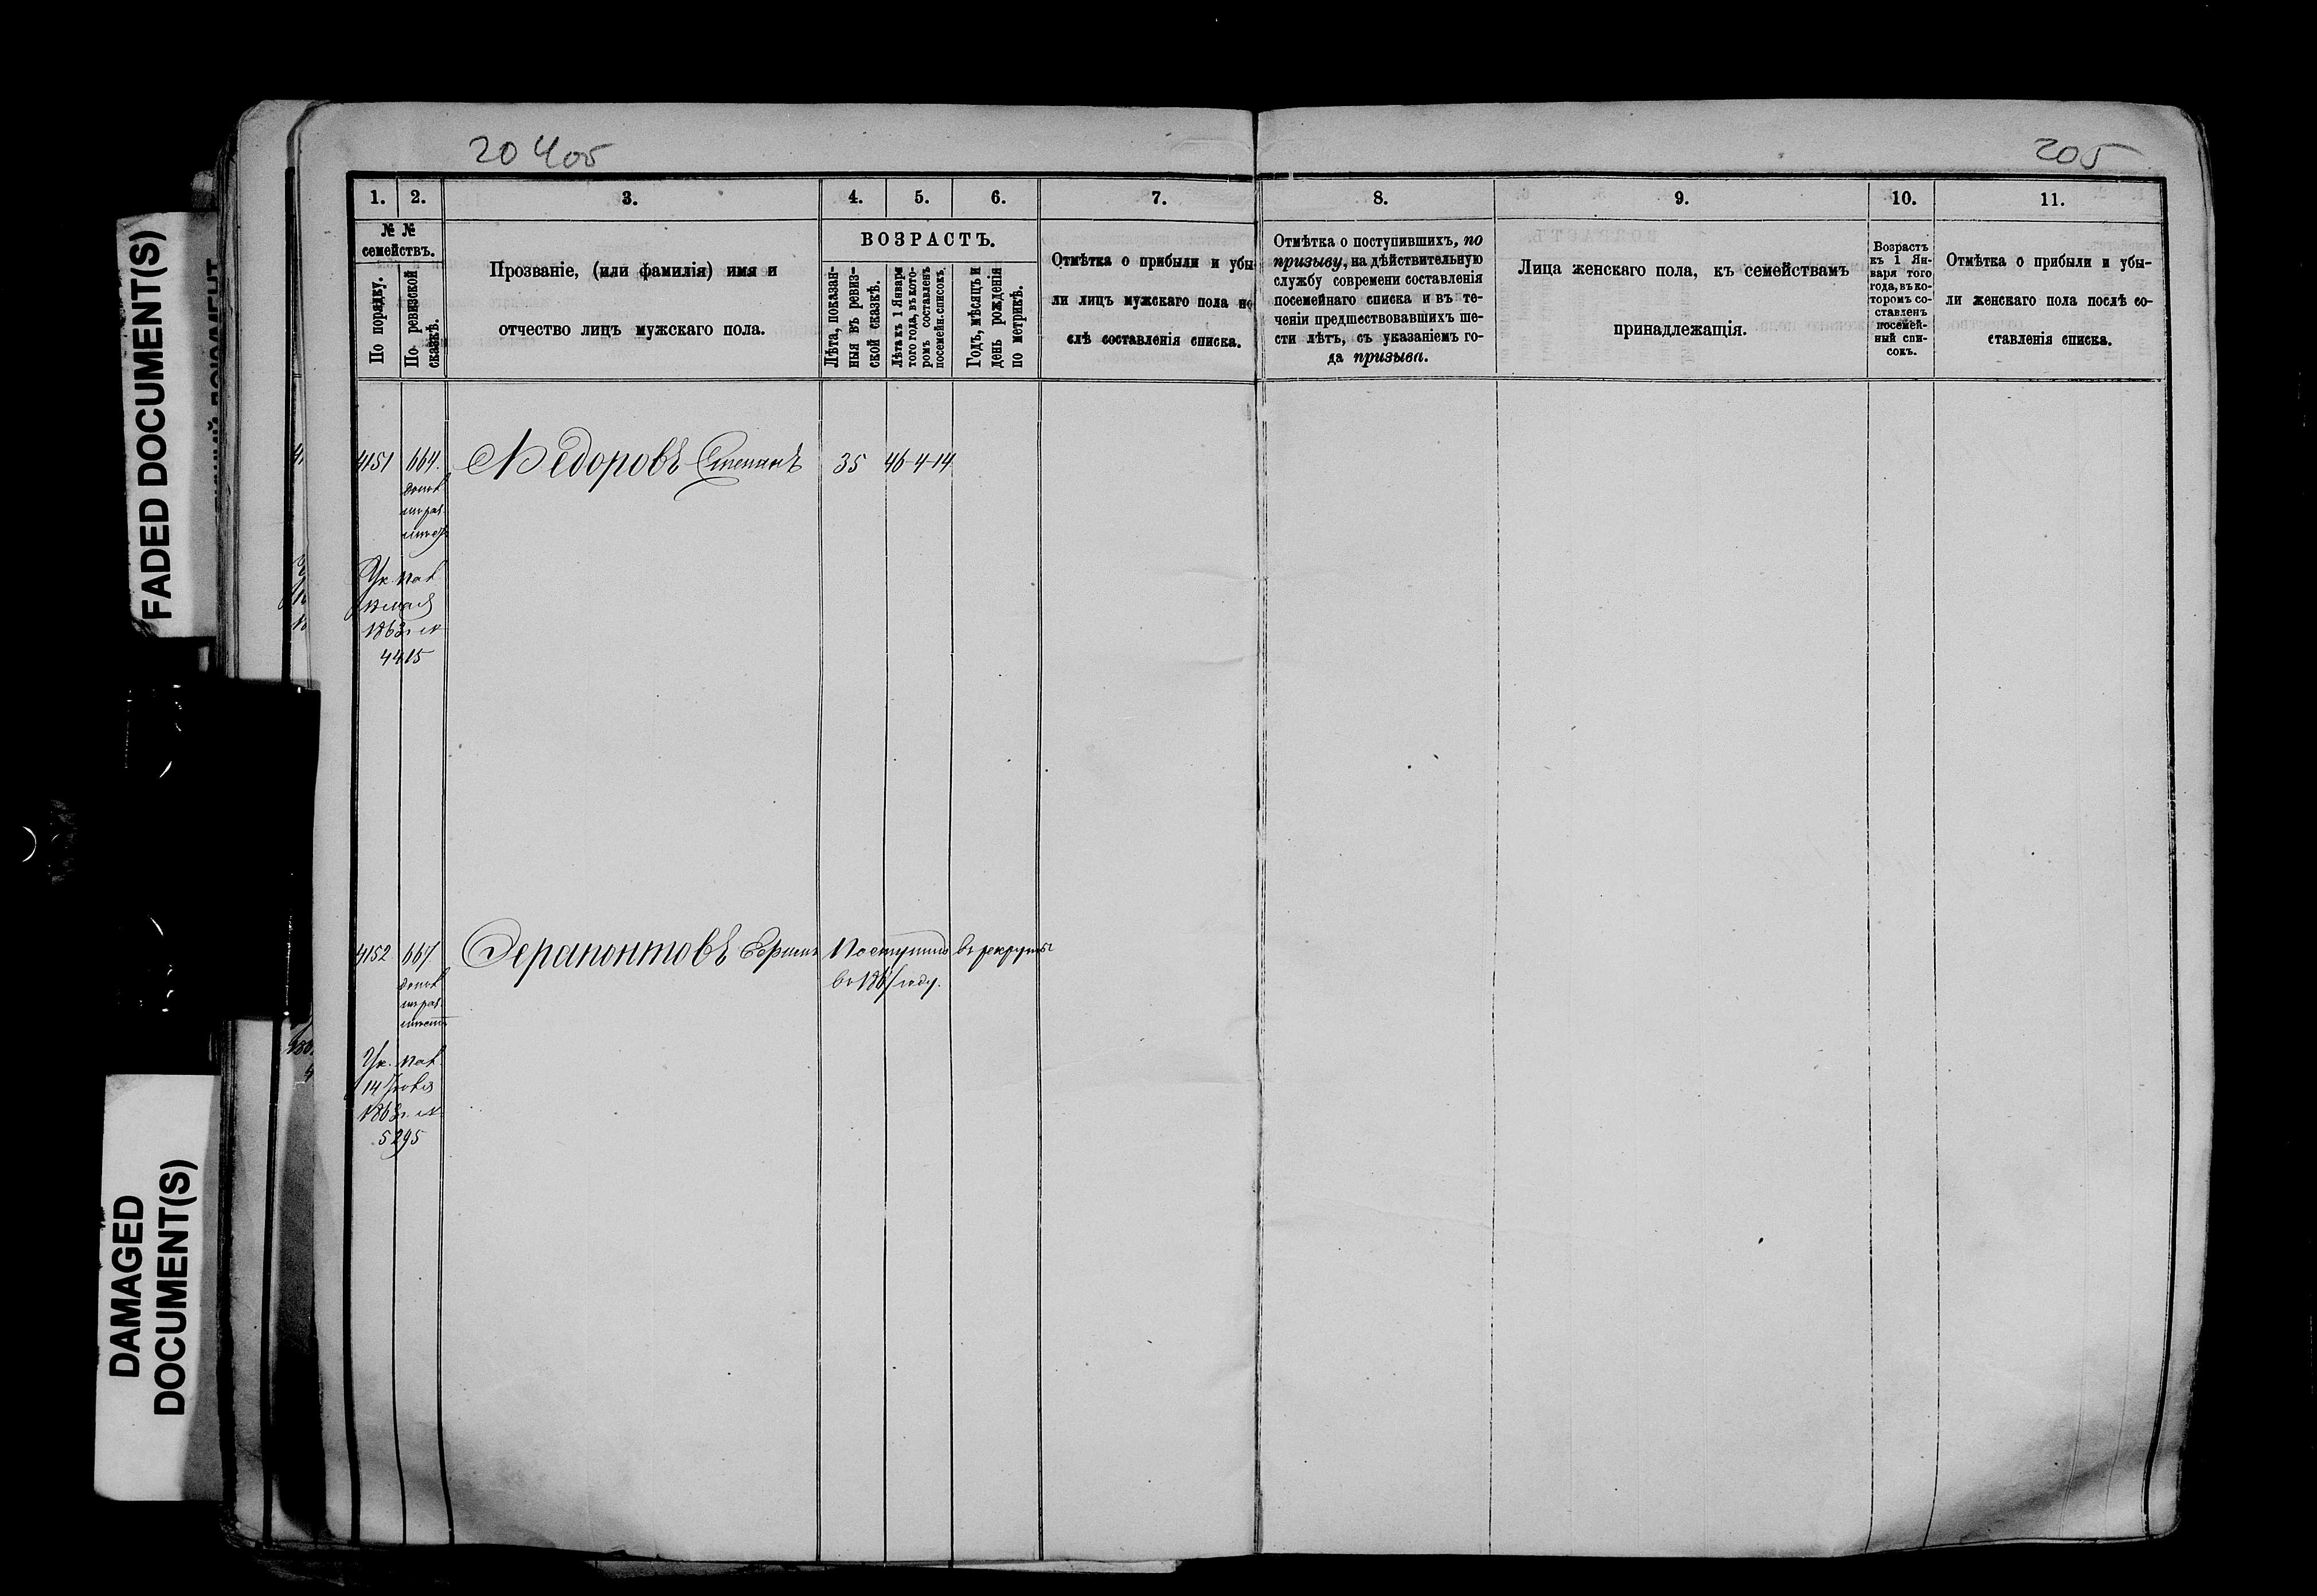 FADED DOCUMENT(S)
DAMAGED
DOCUMENT(S)
204об
205
1. 2. 3. 4. 5. 6. 7. 8. 9. 10. 11.
№ №
семействъ.
По порядку.
По ревизской
сказкѣ.
Прозваніе, (или фамилія) имя и
отчество лицъ мужскаго пола.
ВОЗРАСТЪ.
Лѣта, показан-
ныя въ ревиз-
ской сказкѣ.
Лѣта къ 1 Января
того года, въ кото-
ромъ составленъ
посемейн. списокъ.
Годъ, мѣсяцъ и
день рожденія
по метрикѣ.
Отмѣтка о прибыли и убы-
ли лицъ мужскаго пола по
слѣ составленія списка.
Отмѣтка о поступившихъ, по
призыву, на дѣйствительную
службу современи составленія
посемейнаго списка и въ те-
ченіи предшествовавшихъ ше-
сти лѣтъ, съ указаніемъ го-
да призыва.
Лица женскаго пола, къ семействамъ
принадлежащія.
Возрастъ
къ 1 Ян-
варя того
года, въ ко-
торомъ со-
ставленъ
посемей-
ный спи-
сокъ.
Отмѣтка о прибыли и убы-
ли женскаго пола послѣ со-
ставленія списка.
4151 664. Ѳедоровъ Степанъ 35 46-4-14
Ук. пал
1863 г. №
4415
4152 667. Ферапонтовъ Ефимъ Поступилъ въ рекруты
въ 1867 году.
Ук. пал
14
1863 г. №
5295